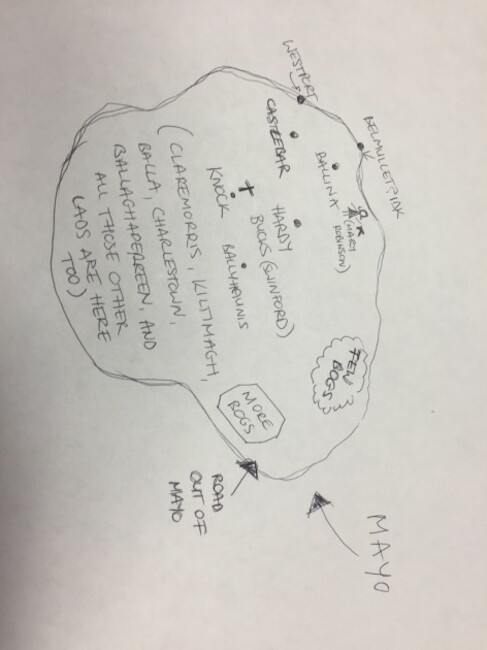 MAYO
BELMULLET:IDK
(MARY
ROBINSON)
FEW
BOGS
BALLINA
WESTPORT
CASTLEBAR
HARDY
BUCKS (SWINFORD)
MORE
BOGS
KNOCK
BALLYHAUNIS
ROAD
OUT OF
MAYO
(CLAREMORRIS, KILTIMAGH,
BALLA, CHARLESTOWN,
BALLAGHADERREEN, AND
ALL THOSE OTHER
LADS ARE HERE
TOO)